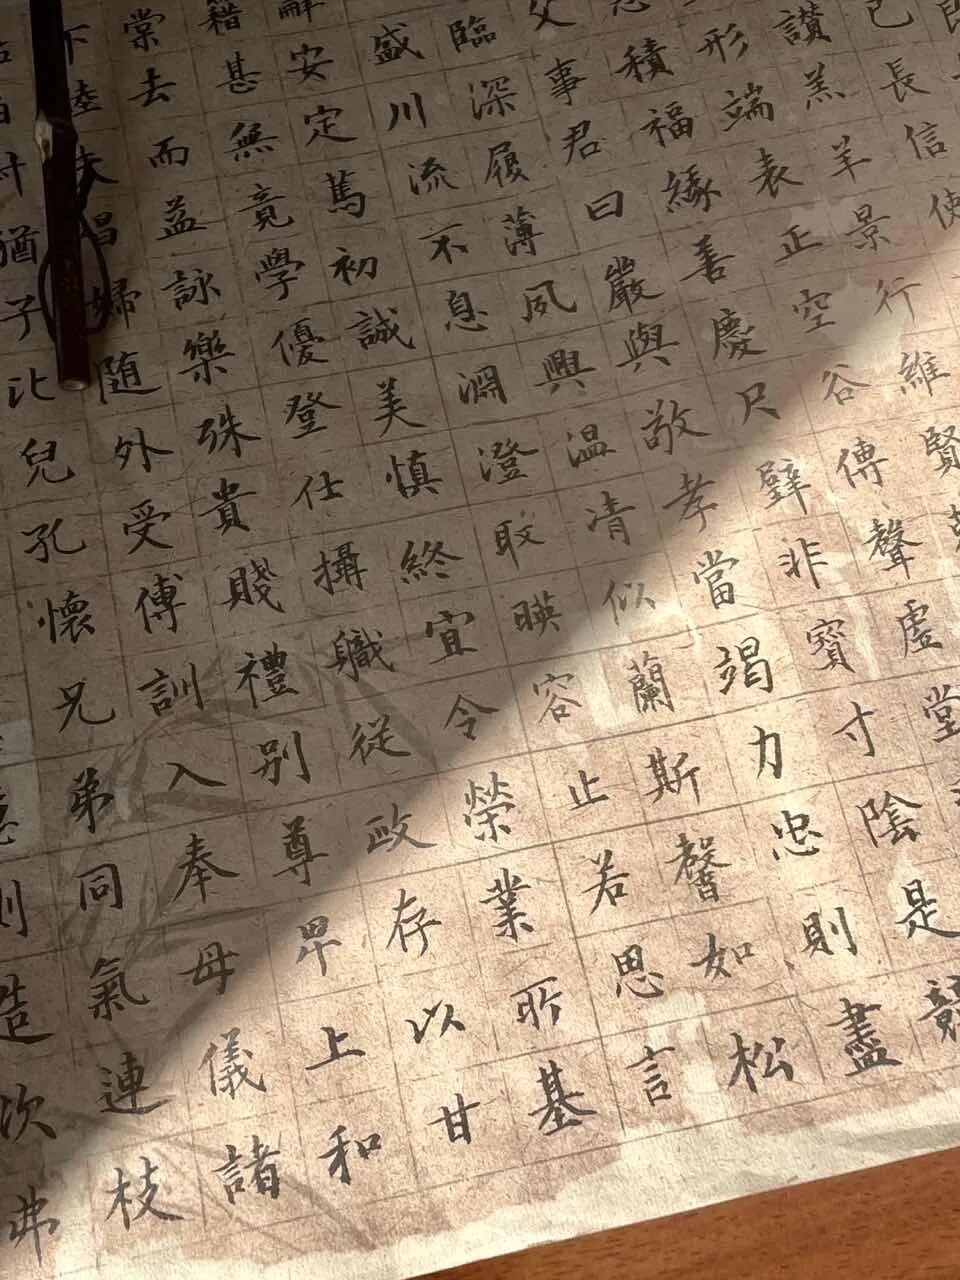 長信使
讚羔羊景行維賢
形端表正空谷傳聲虛堂
積福緣善慶尺璧非寶寸陰是競
父事君曰嚴與敬孝當竭力忠則盡
臨深履薄夙興溫凊似蘭斯馨如松
盛川流不息淵澄取暎容止若思言
安定篤初誠美慎終宜令榮業所基
籍甚無竟學優登仕攝職從政存以甘
棠去而益詠樂殊貴賤禮別尊卑上和
下睦夫唱婦随外受傅訓入奉母儀諸
伯叔猶子比兒孔懷兄弟同氣連枝
造次弗